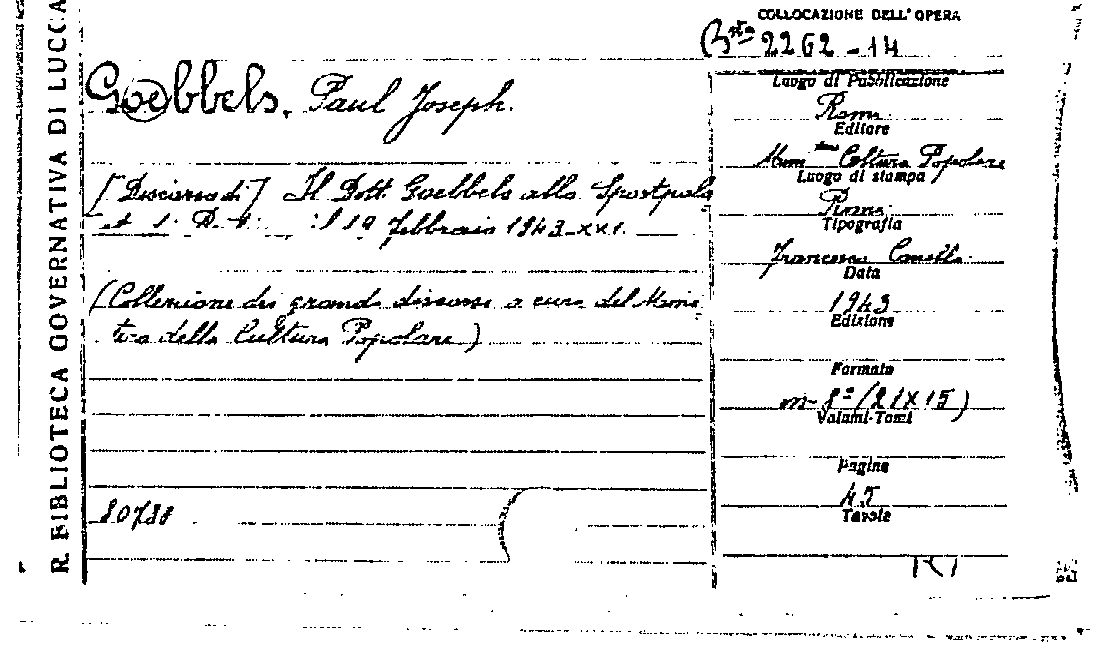 R. BIBLIOTECA GOVERNATIVA DI LUCCA
COLLOCAZIONE DELL'OPERA
Bta 2262-14
Goebbels, Paul Joseph.
[Discorso di] Il Dott. Goebbels allo Sportpala
il 19 febbraio 1943-XXI.
(Collezione dei grandi discorsi a cura del Minis
tero della Cultura Popolare)
80788
Luogo di Pubblicazione
Roma
Editore
Cultura Popolare
Luogo di stampa
Roma
Tipografia
Francesco
Data
1943
Edizione
Formato
in-8º (21x15)
Volumi-Tomi
Pagine
45
Tavole